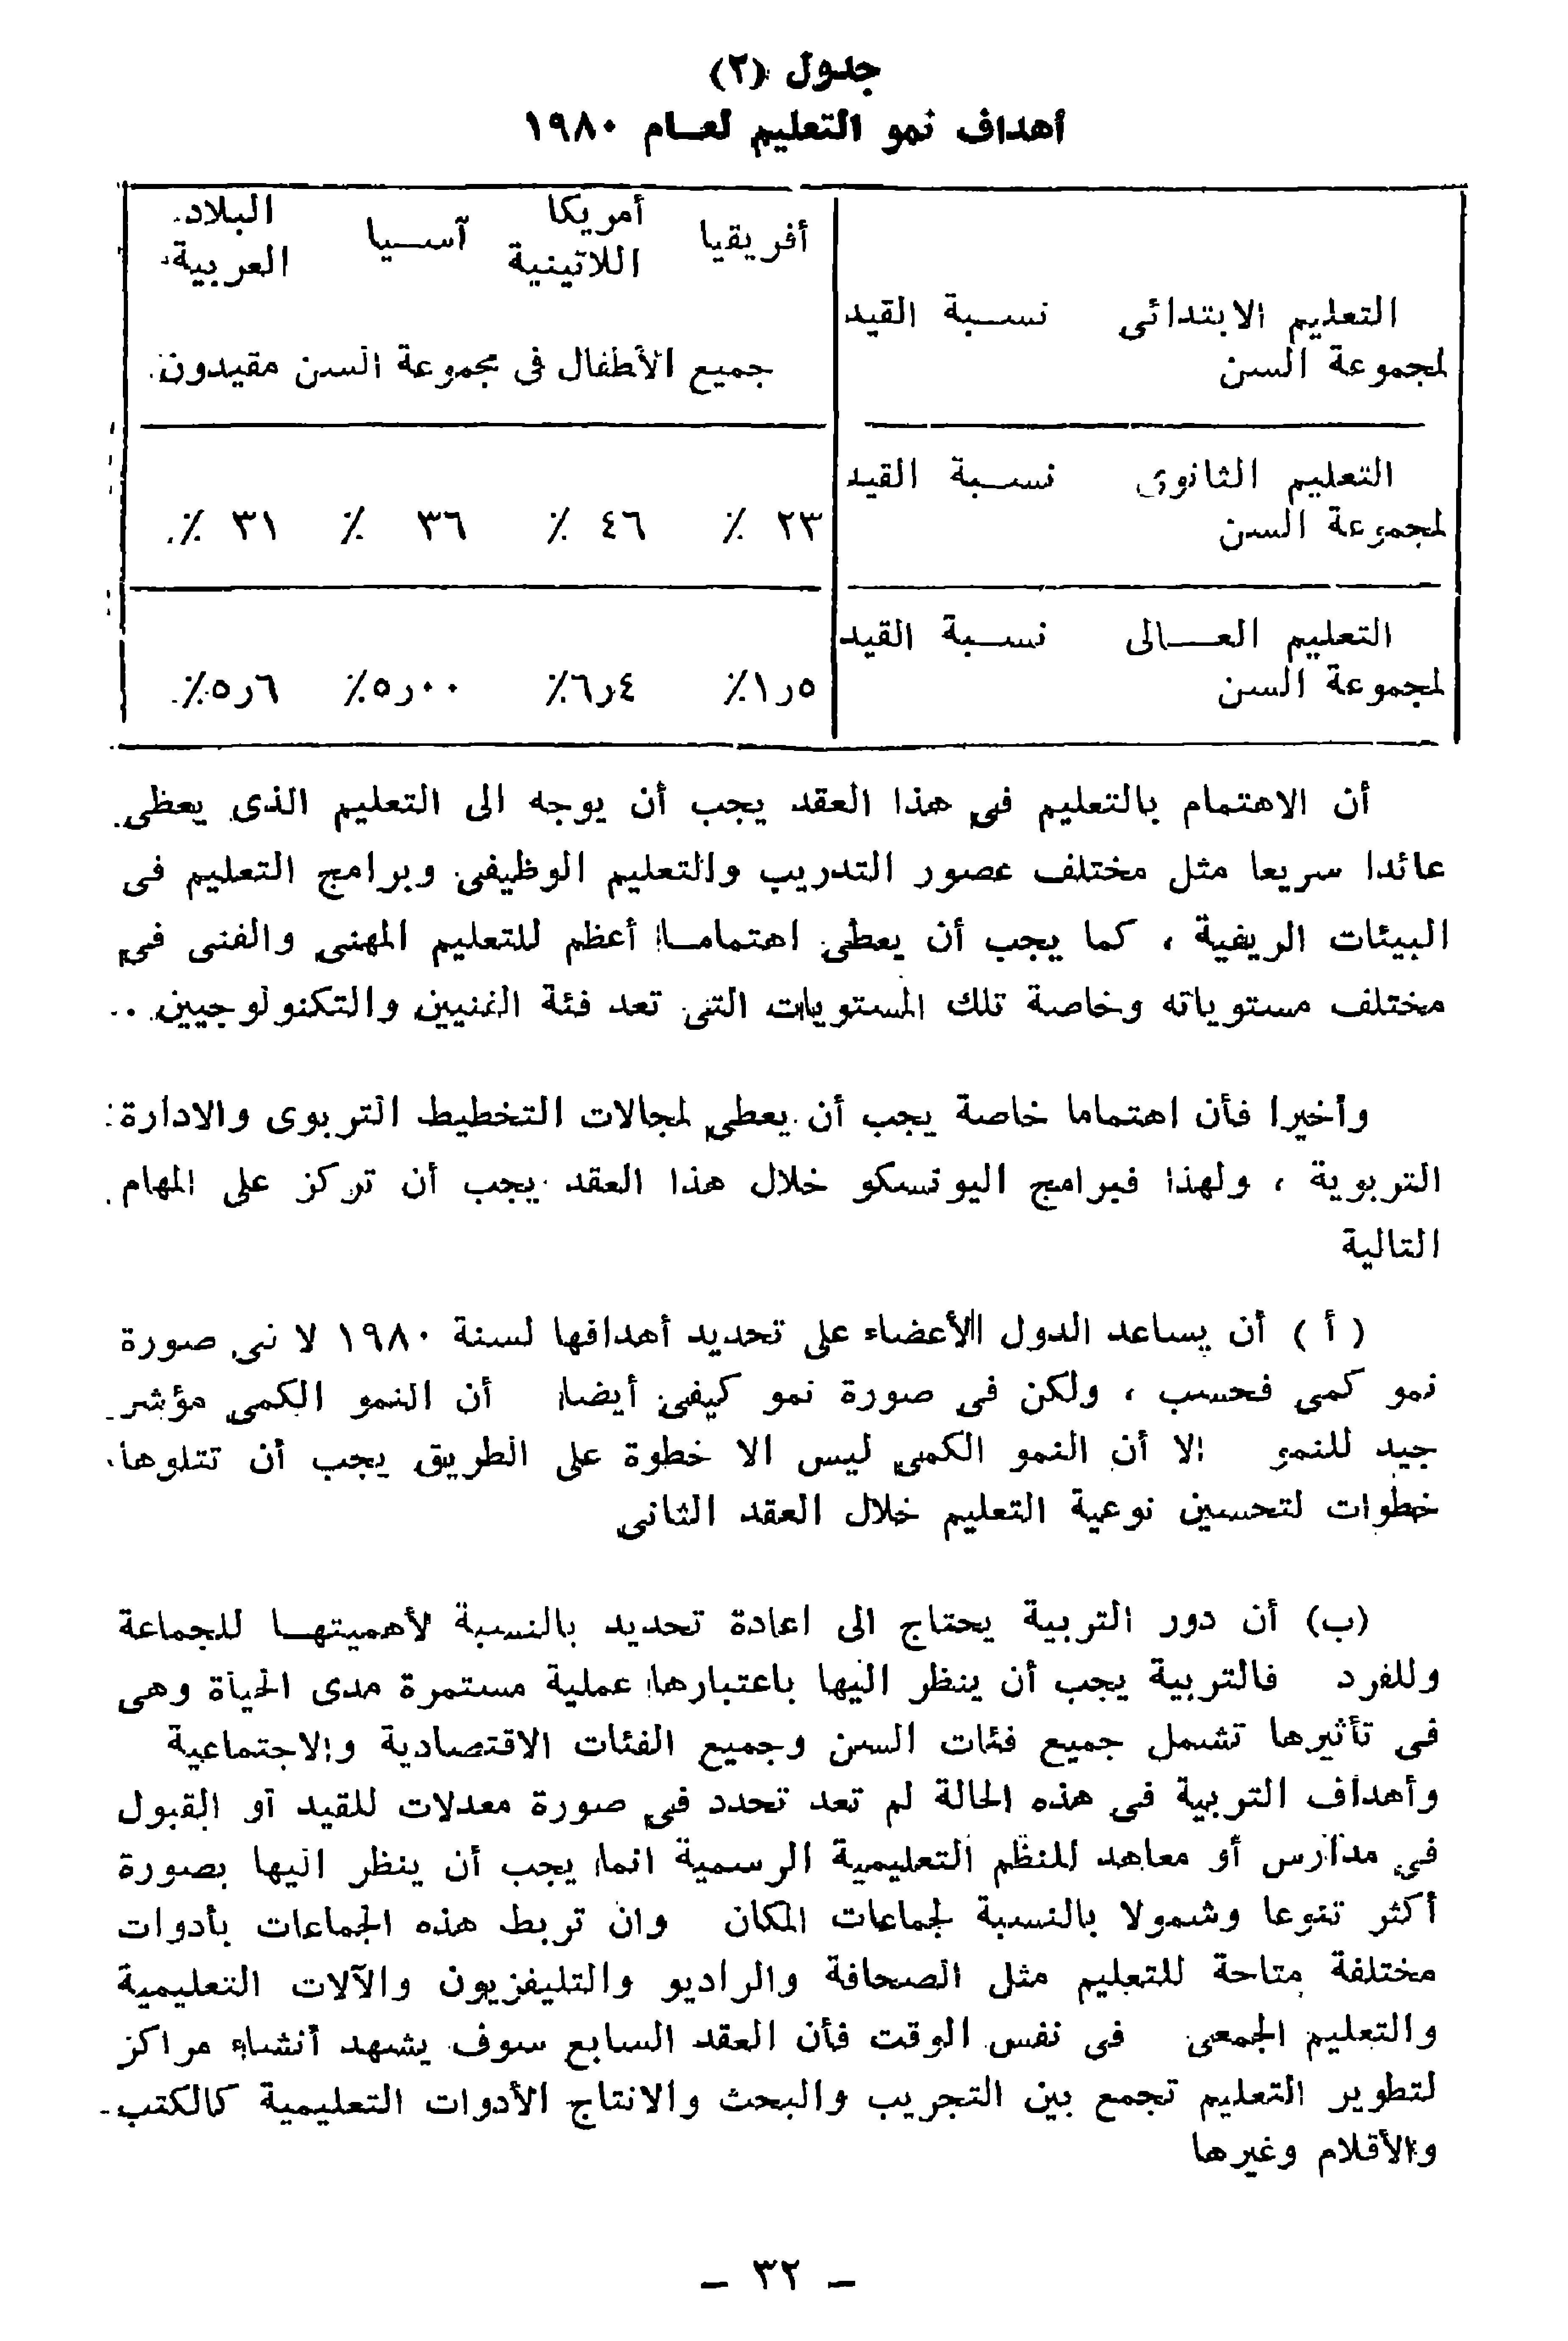 جدول (٢)
أهداف نمو التعليم لعـام ١٩٨٠
أفريقيا أمريكا اللاتينية آسـيا البلاد العربية
التعليم الابتدائى نسـبة القيد
لمجموعة السن جميع الأطفال فى مجموعة السن مقيدون.
التعليم الثانوى نسـبة القيد
لمجموعة السن ٢٣ ٪ ٤٦ ٪ ٣٦ ٪ ٣١ ٪
التعليم العـالى نسـبة القيد
لمجموعة السن ٥ر١٪ ٤ر٦٪ ٠٠ر٥٪ ٦ر٥٪
أن الاهتمام بالتعليم فى هذا العقد يجب أن يوجه الى التعليم الذى يعطى
عائدا سريعا مثل مختلف عصور التدريب والتعليم الوظيفى وبرامج التعليم فى
البيئات الريفية ، كما يجب أن يعطى اهتمامـا أعظم للتعليم المهنى والفنى فى
مختلف مستوياته وخاصة تلك المستويات التى تعد فئة الفنيين والتكنولوجيين ..
وأخيرا فأن اهتماما خاصة يجب أن يعطى لمجالات التخطيط التربوى والادارة
التربوية ، ولهذا فبرامج اليونسكو خلال هذا العقد يجب أن تركز على المهام
التالية
( أ ) أن يساعد الدول الأعضاء على تحديد أهدافها لسنة ١٩٨٠ لا نى صورة
نمو كمى فحسب ، ولكن فى صورة نمو كيفى أيضا أن النمو الكمى مؤشر
جيد للنمو الا أن النمو الكمى ليس الا خطوة على الطريق يجب أن تتلوها
خطوات لتحسين نوعية التعليم خلال العقد الثانى
(ب) أن دور التربية يحتاج الى اعادة تحديد بالنسبة لأهميتهـا للجماعة
وللفرد فالتربية يجب أن ينظر اليها باعتبارها عملية مستمرة مدى الحياة وهى
فى تأثيرها تشمل جميع فئات السن وجميع الفئات الاقتصادية والاجتماعية
وأهداف التربية فى هذه الحالة لم تعد تحدد فى صورة معدلات للقيد أو القبول
فى مدارس أو معاهد للنظم التعليمية الرسمية انما يجب أن ينظر اليها بصورة
أكثر تنوعا وشمولا بالنسبة لجماعات المكان وان تربط هذه الجماعات بأدوات
مختلفة متاحة للتعليم مثل الصحافة والراديو والتليفزيون والآلات التعليمية
والتعليم الجمعى فى نفس الوقت فأن العقد السابع سوف يشهد أنشاء مراكز
لتطوير التعليم تجمع بين التجريب والبحث والانتاج الأدوات التعليمية كالكتب
والأقلام وغيرها
- ٣٢ -